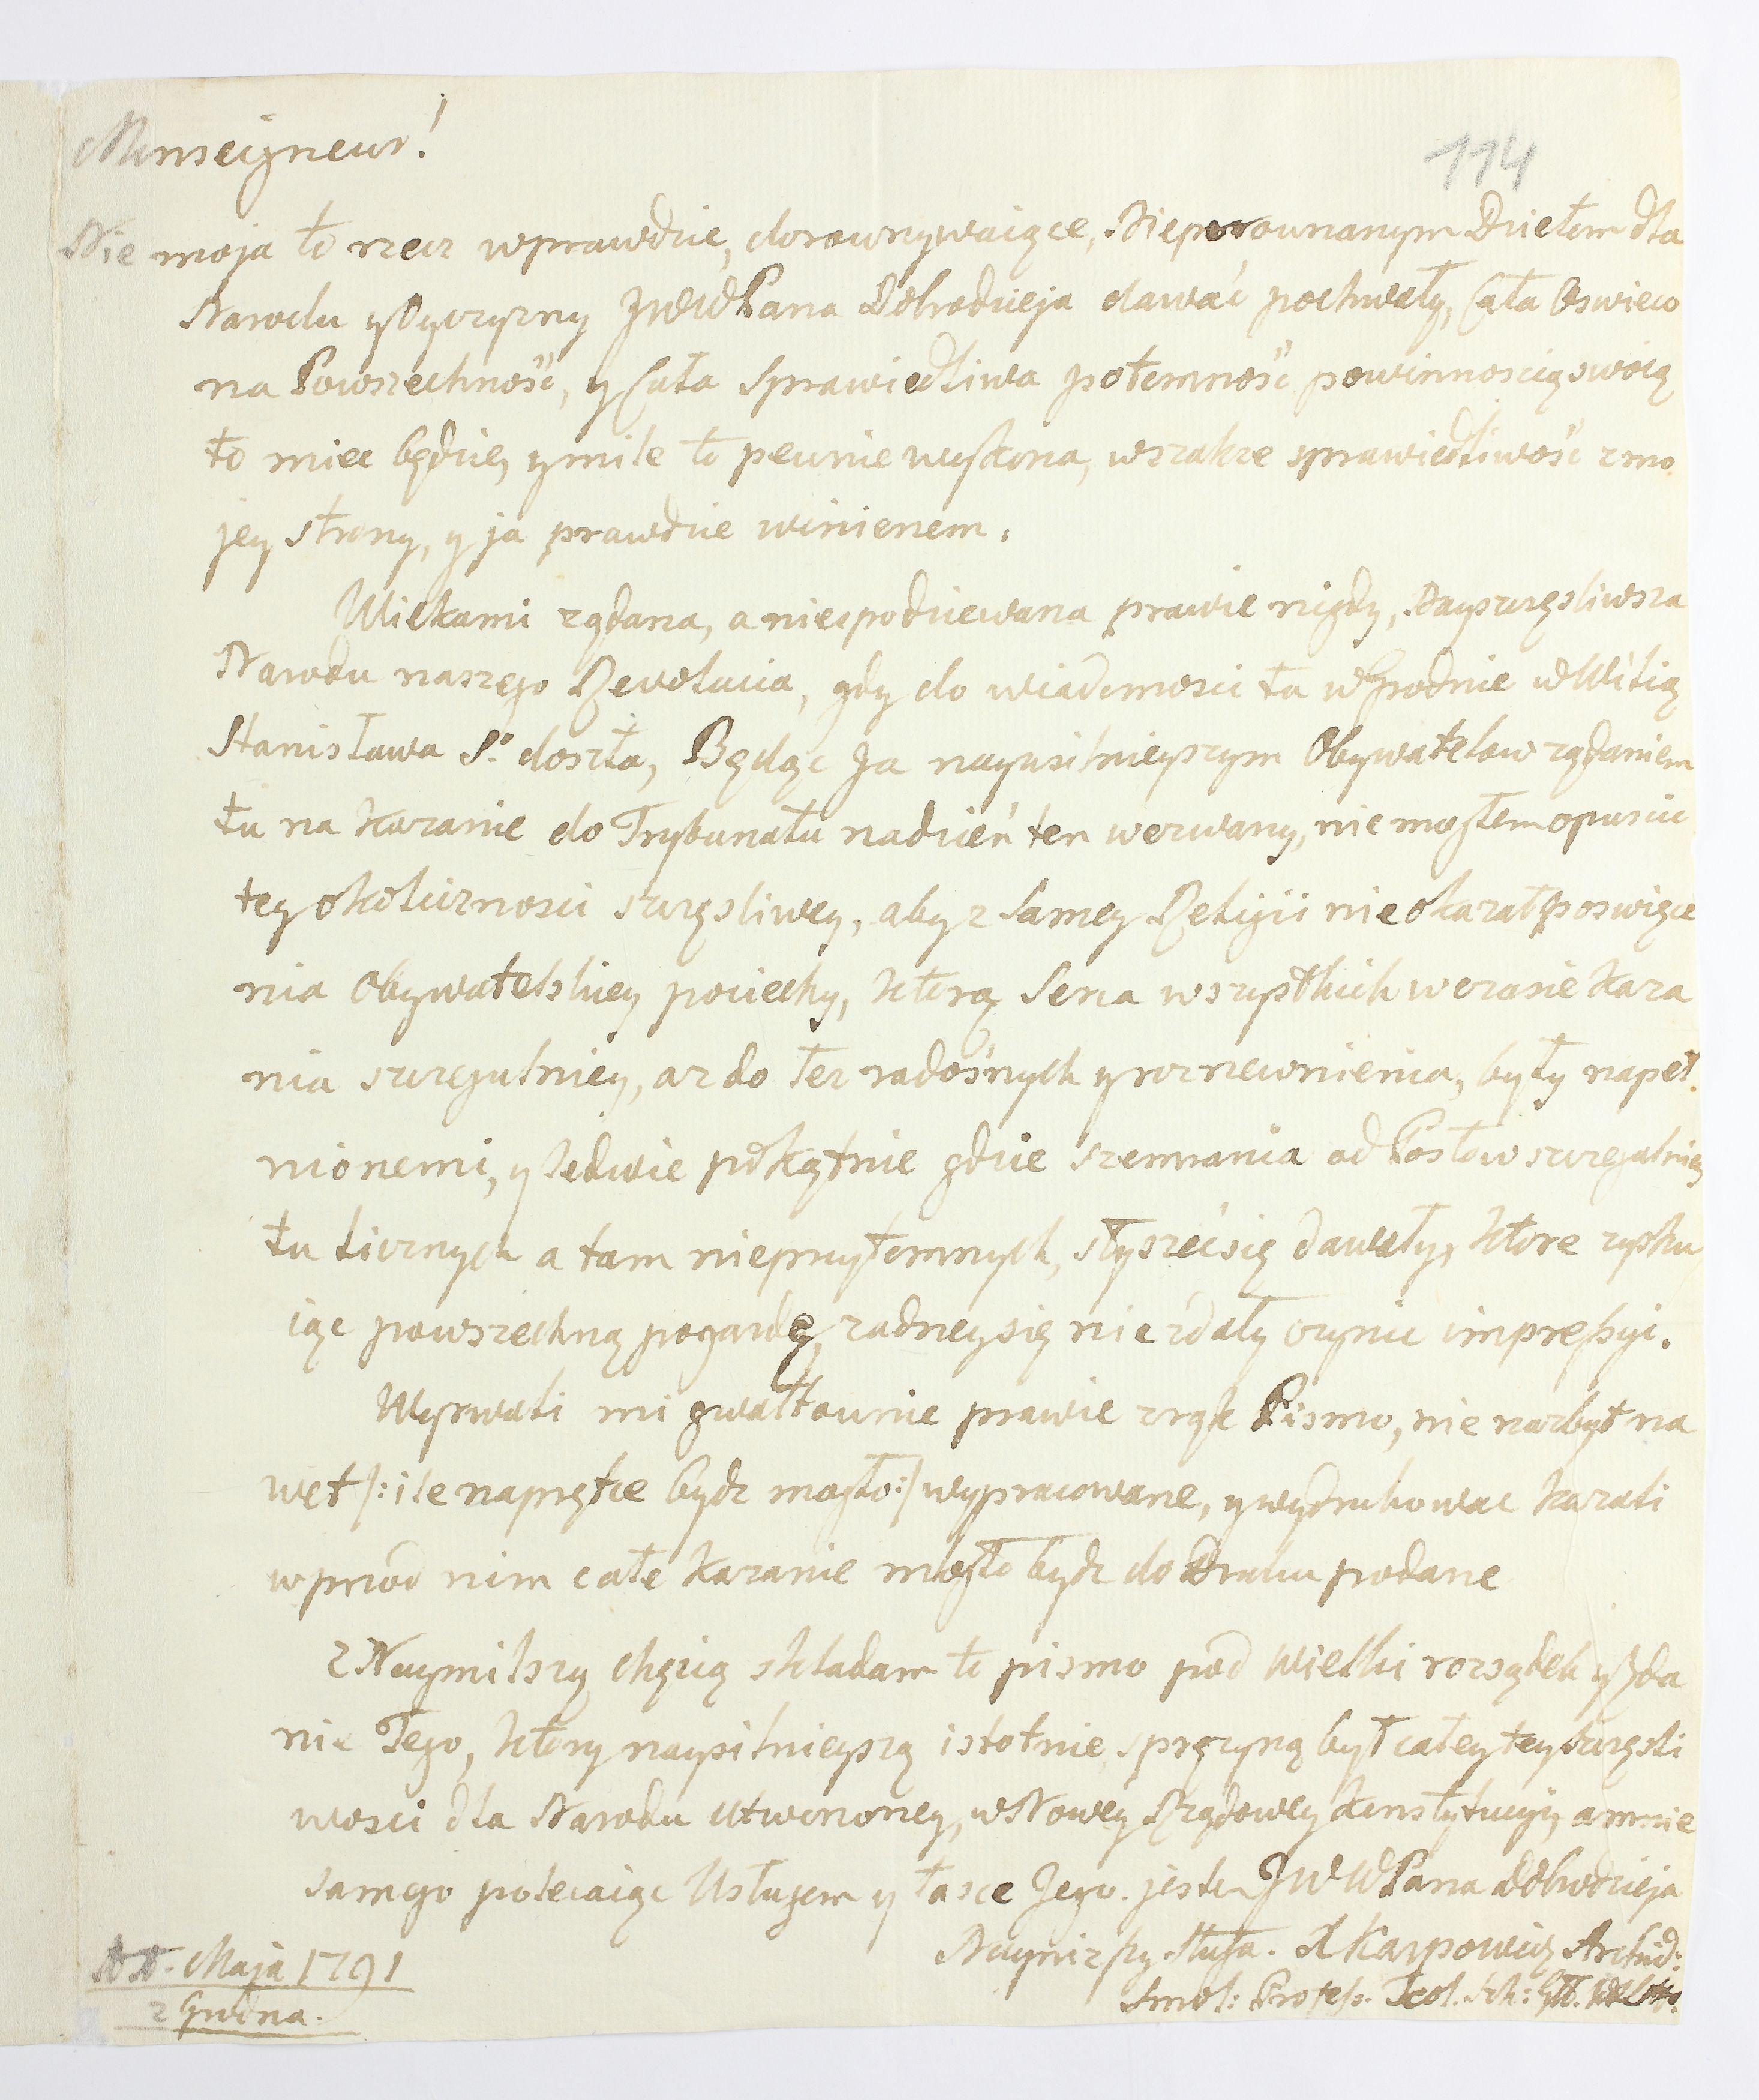 Monseigneur!
114
Nie moja to rzecz wprawdzie, dorownywaiące, Nieporownanym Dziełom dla
Narodu y Oyczyzny JWWPana Dobrodzieja dawać pochwały, Cała Oswieco
na Powszechność, y Cała Sprawiedliwa potomność powinnoscią swoią
to miec będzie, y mile to pewnie wykona, wszakze sprawiedliwość z mo
jey strony, y ja prawdzie winienem.
Wiekami ządana, a niespodziewana prawie nigdy, Nayszczęsliwsza
Narodu naszego Rewolucia, gdy do wiadomosci tu w Grodnie w Wilią
Stanisława S.º doszła, Będąc Ja nayusilnieyszym Obywatelow ządaniem
tu na Kazanie do Trybunału na dzień ten wezwany, nie mogłem opuscic
tey okolicznosci szczęsliwey, aby z Samey Religii nie okazał poswięce
nia Obywatelskiey pociechy, ktorą Serca wszystkich w czasie Kaza
nia szczegulniey, az do łez radośnych y rozrzewnienia, były napeł
nionemi, y ledwie pokątnie gdzie szemrania od Posłow szczegulniey
tu licznych a tam nieprzytomnych, słyszeć się dawały, ktore zysku
iąc powszechną pogardę, zadney się nie zdały czynic impressyi.
Wyrwali mi gwałtownie prawie z rąk Pismo, nie nazbyt na
wet /: ile naprętce bydz mogło :/ wypracowane, y wydrukowac kazali
wprzod nim całe Kazanie mogło bydz do Druku podane
Z Naymilszą chęcią składam to pismo pod Wielki rozsądek y Zda
nie Tego, ktory naysilnieyszą istotnie spręzyną był całey tey szczęsli
wosci dla Narodu utworzoney, w Nowey Rządowey Konstytucyi, a mnie
samego polecaiąc Usługom y łasce Jego. jestem JWWPana Dobrodzieja
Nayniższy Sługa. X Karpowicz Archid:
Smol: Profess. Teol. Szk: Gł. W X Litt:
Maja 1791
z Grodna.